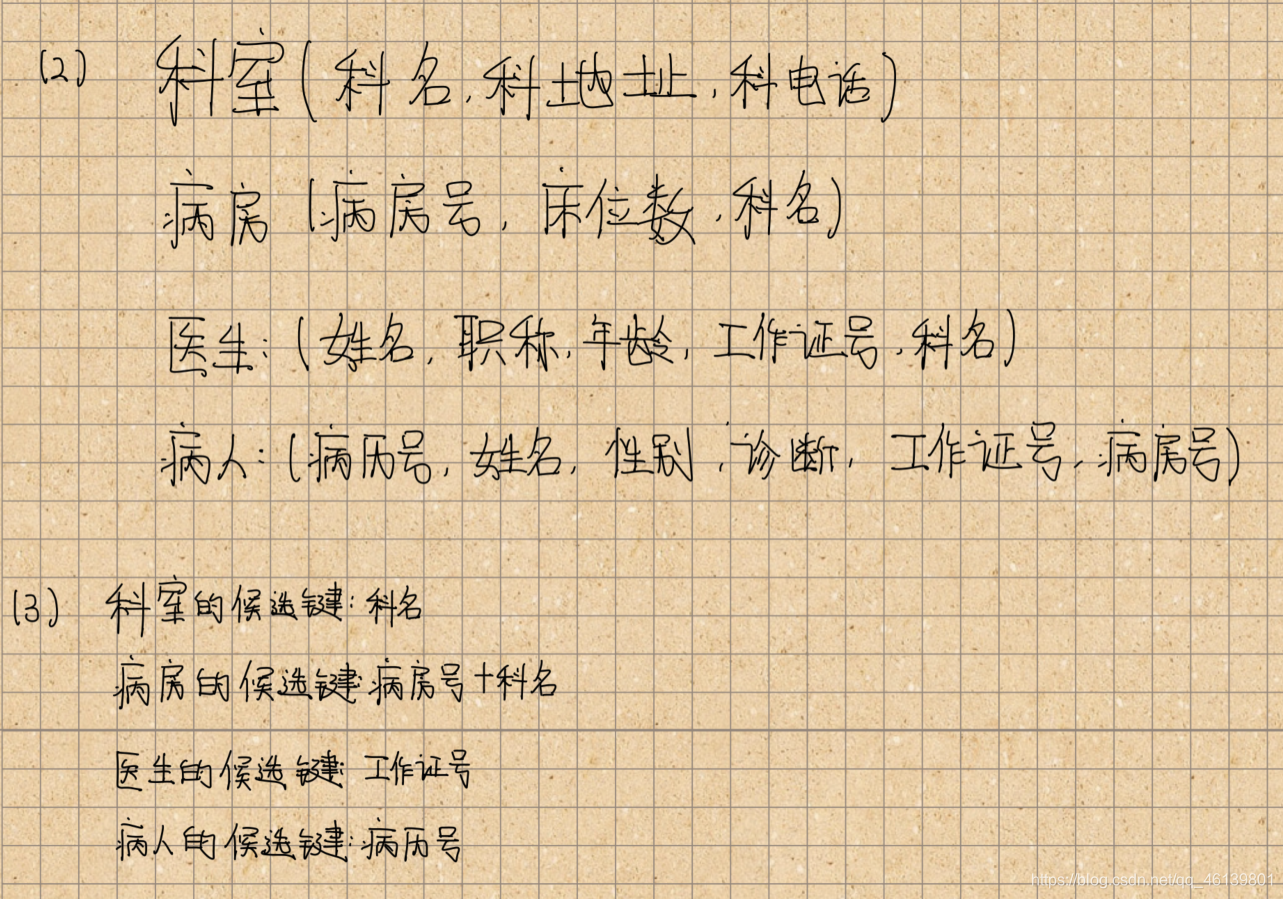 (2) 科室(科名,科地址,科电话)
病房(病房号,床位数,科名)
医生:(姓名,职称,年龄,工作证号,科名)
病人:(病历号,姓名,性别,诊断,工作证号,病房号)
(3) 科室的候选键:科名
病房的候选键:病房号+科名
医生的候选键:工作证号
病人的候选键:病历号
https://blog.csdn.net/qq_46139801